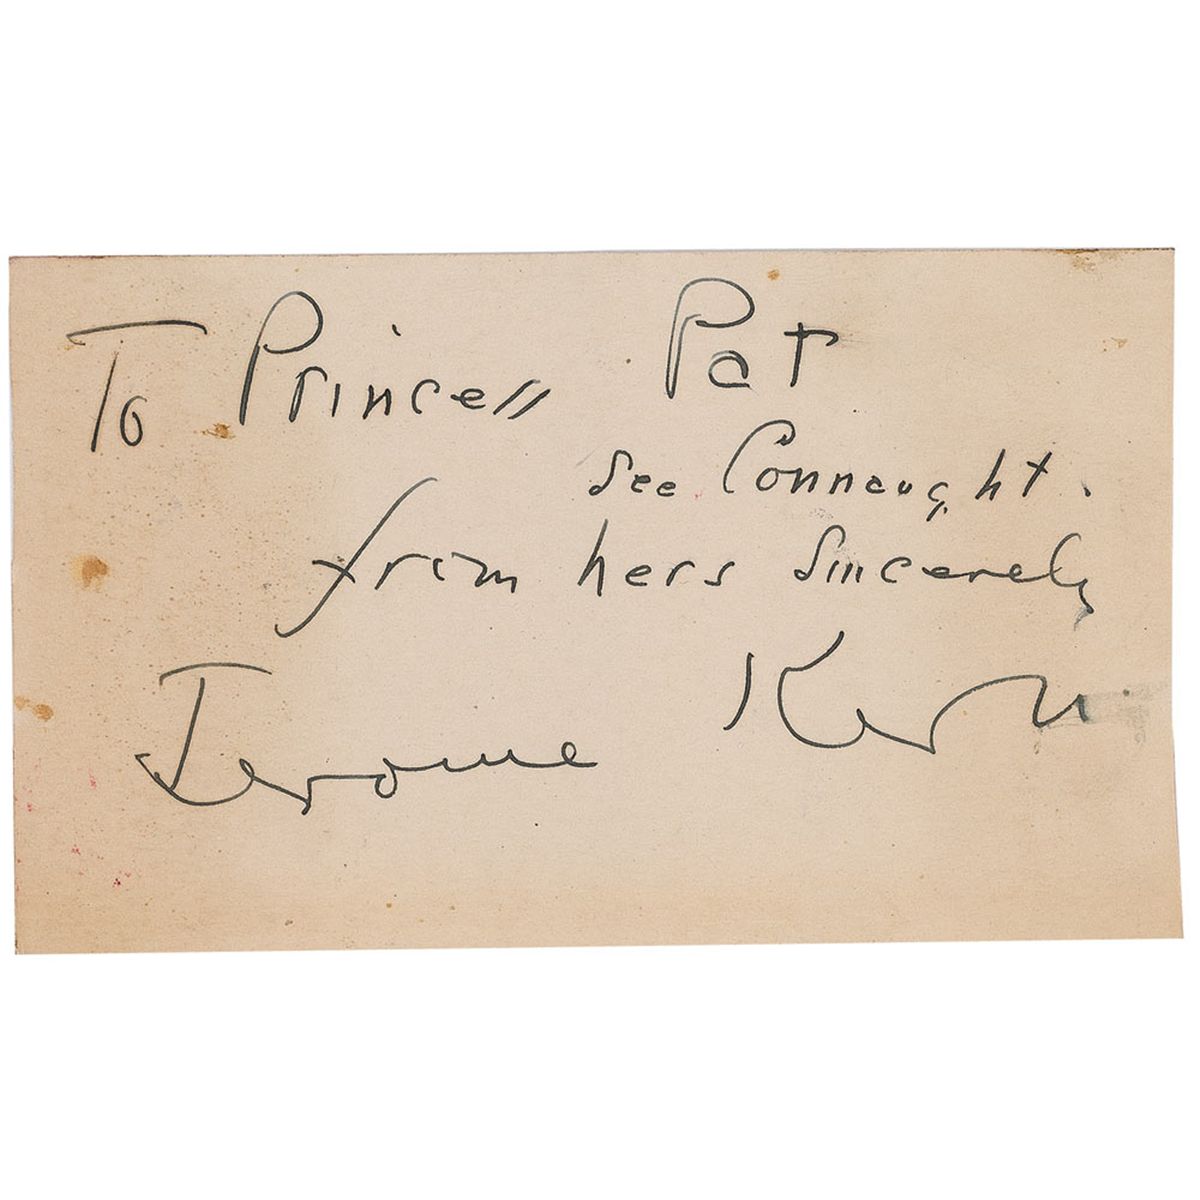 To Princess Pat
See Connaught.
from hers Sincerely
Jerome Kern